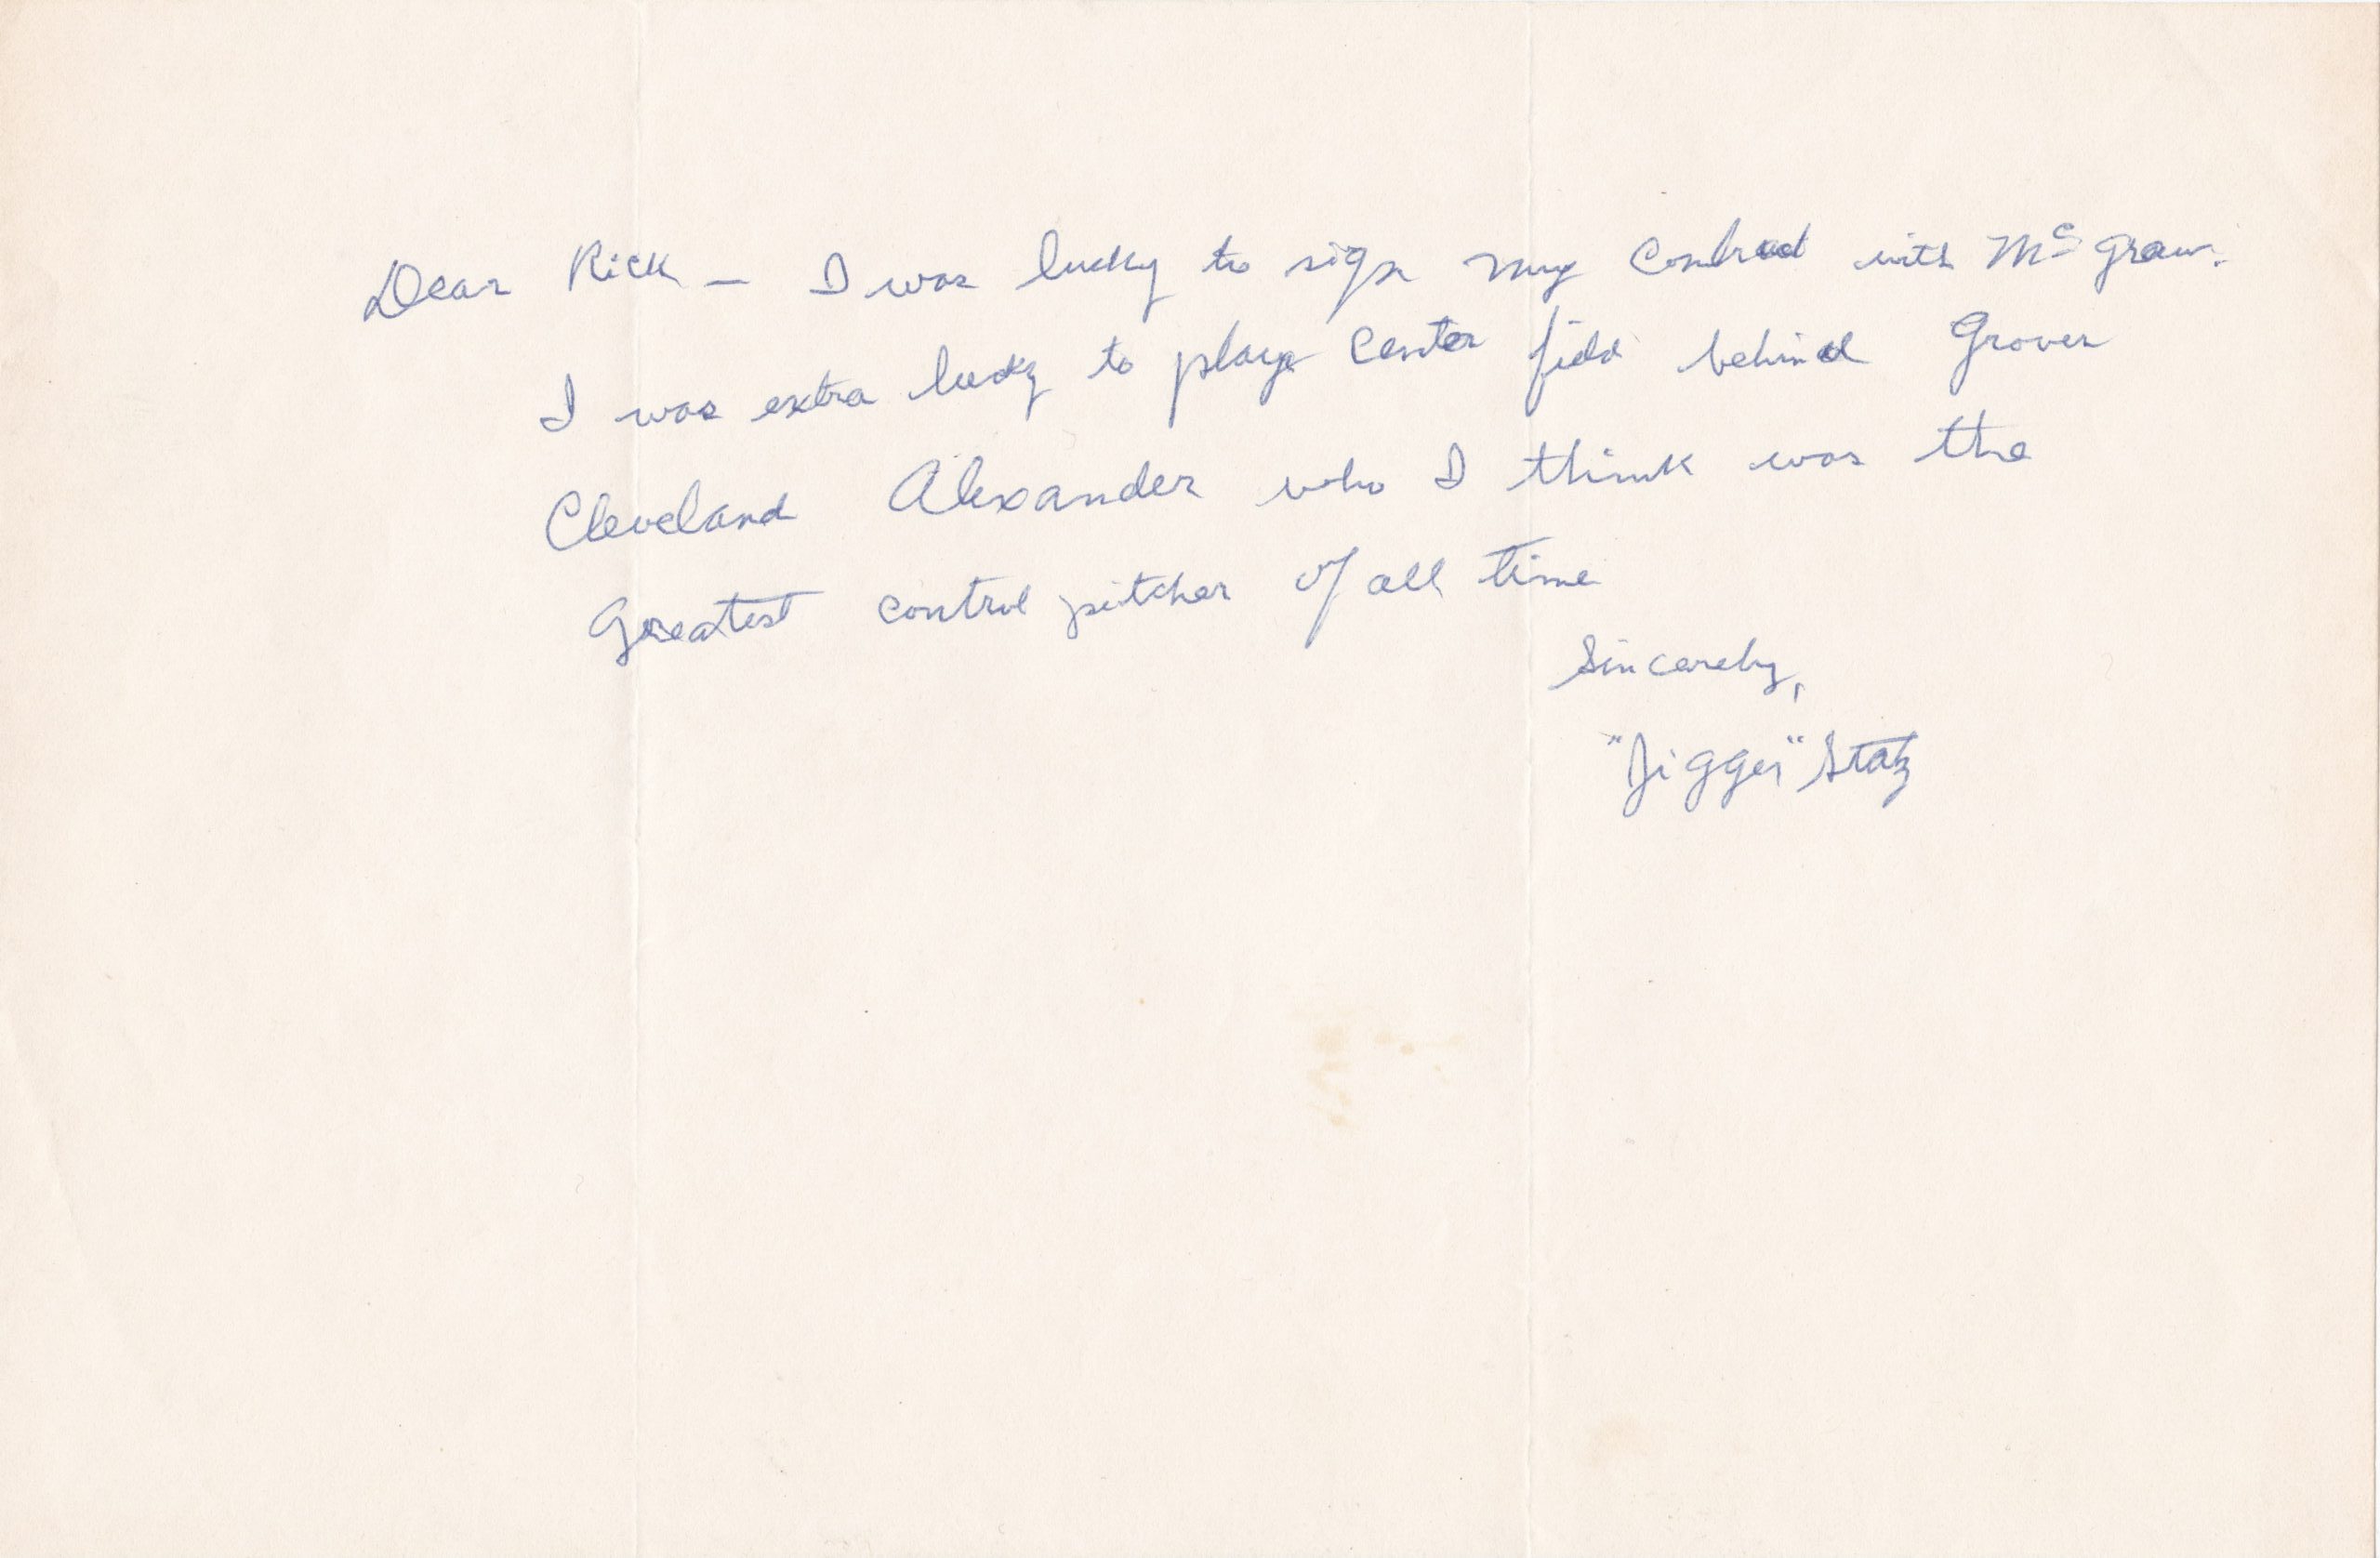 Dear Rick — I was lucky to sign my contract with McGraw.
I was extra lucky to play center field behind Grover
Cleveland Alexander who I think was the
Greatest control pitcher of all time
Sincerely,
"Jigger" Statz